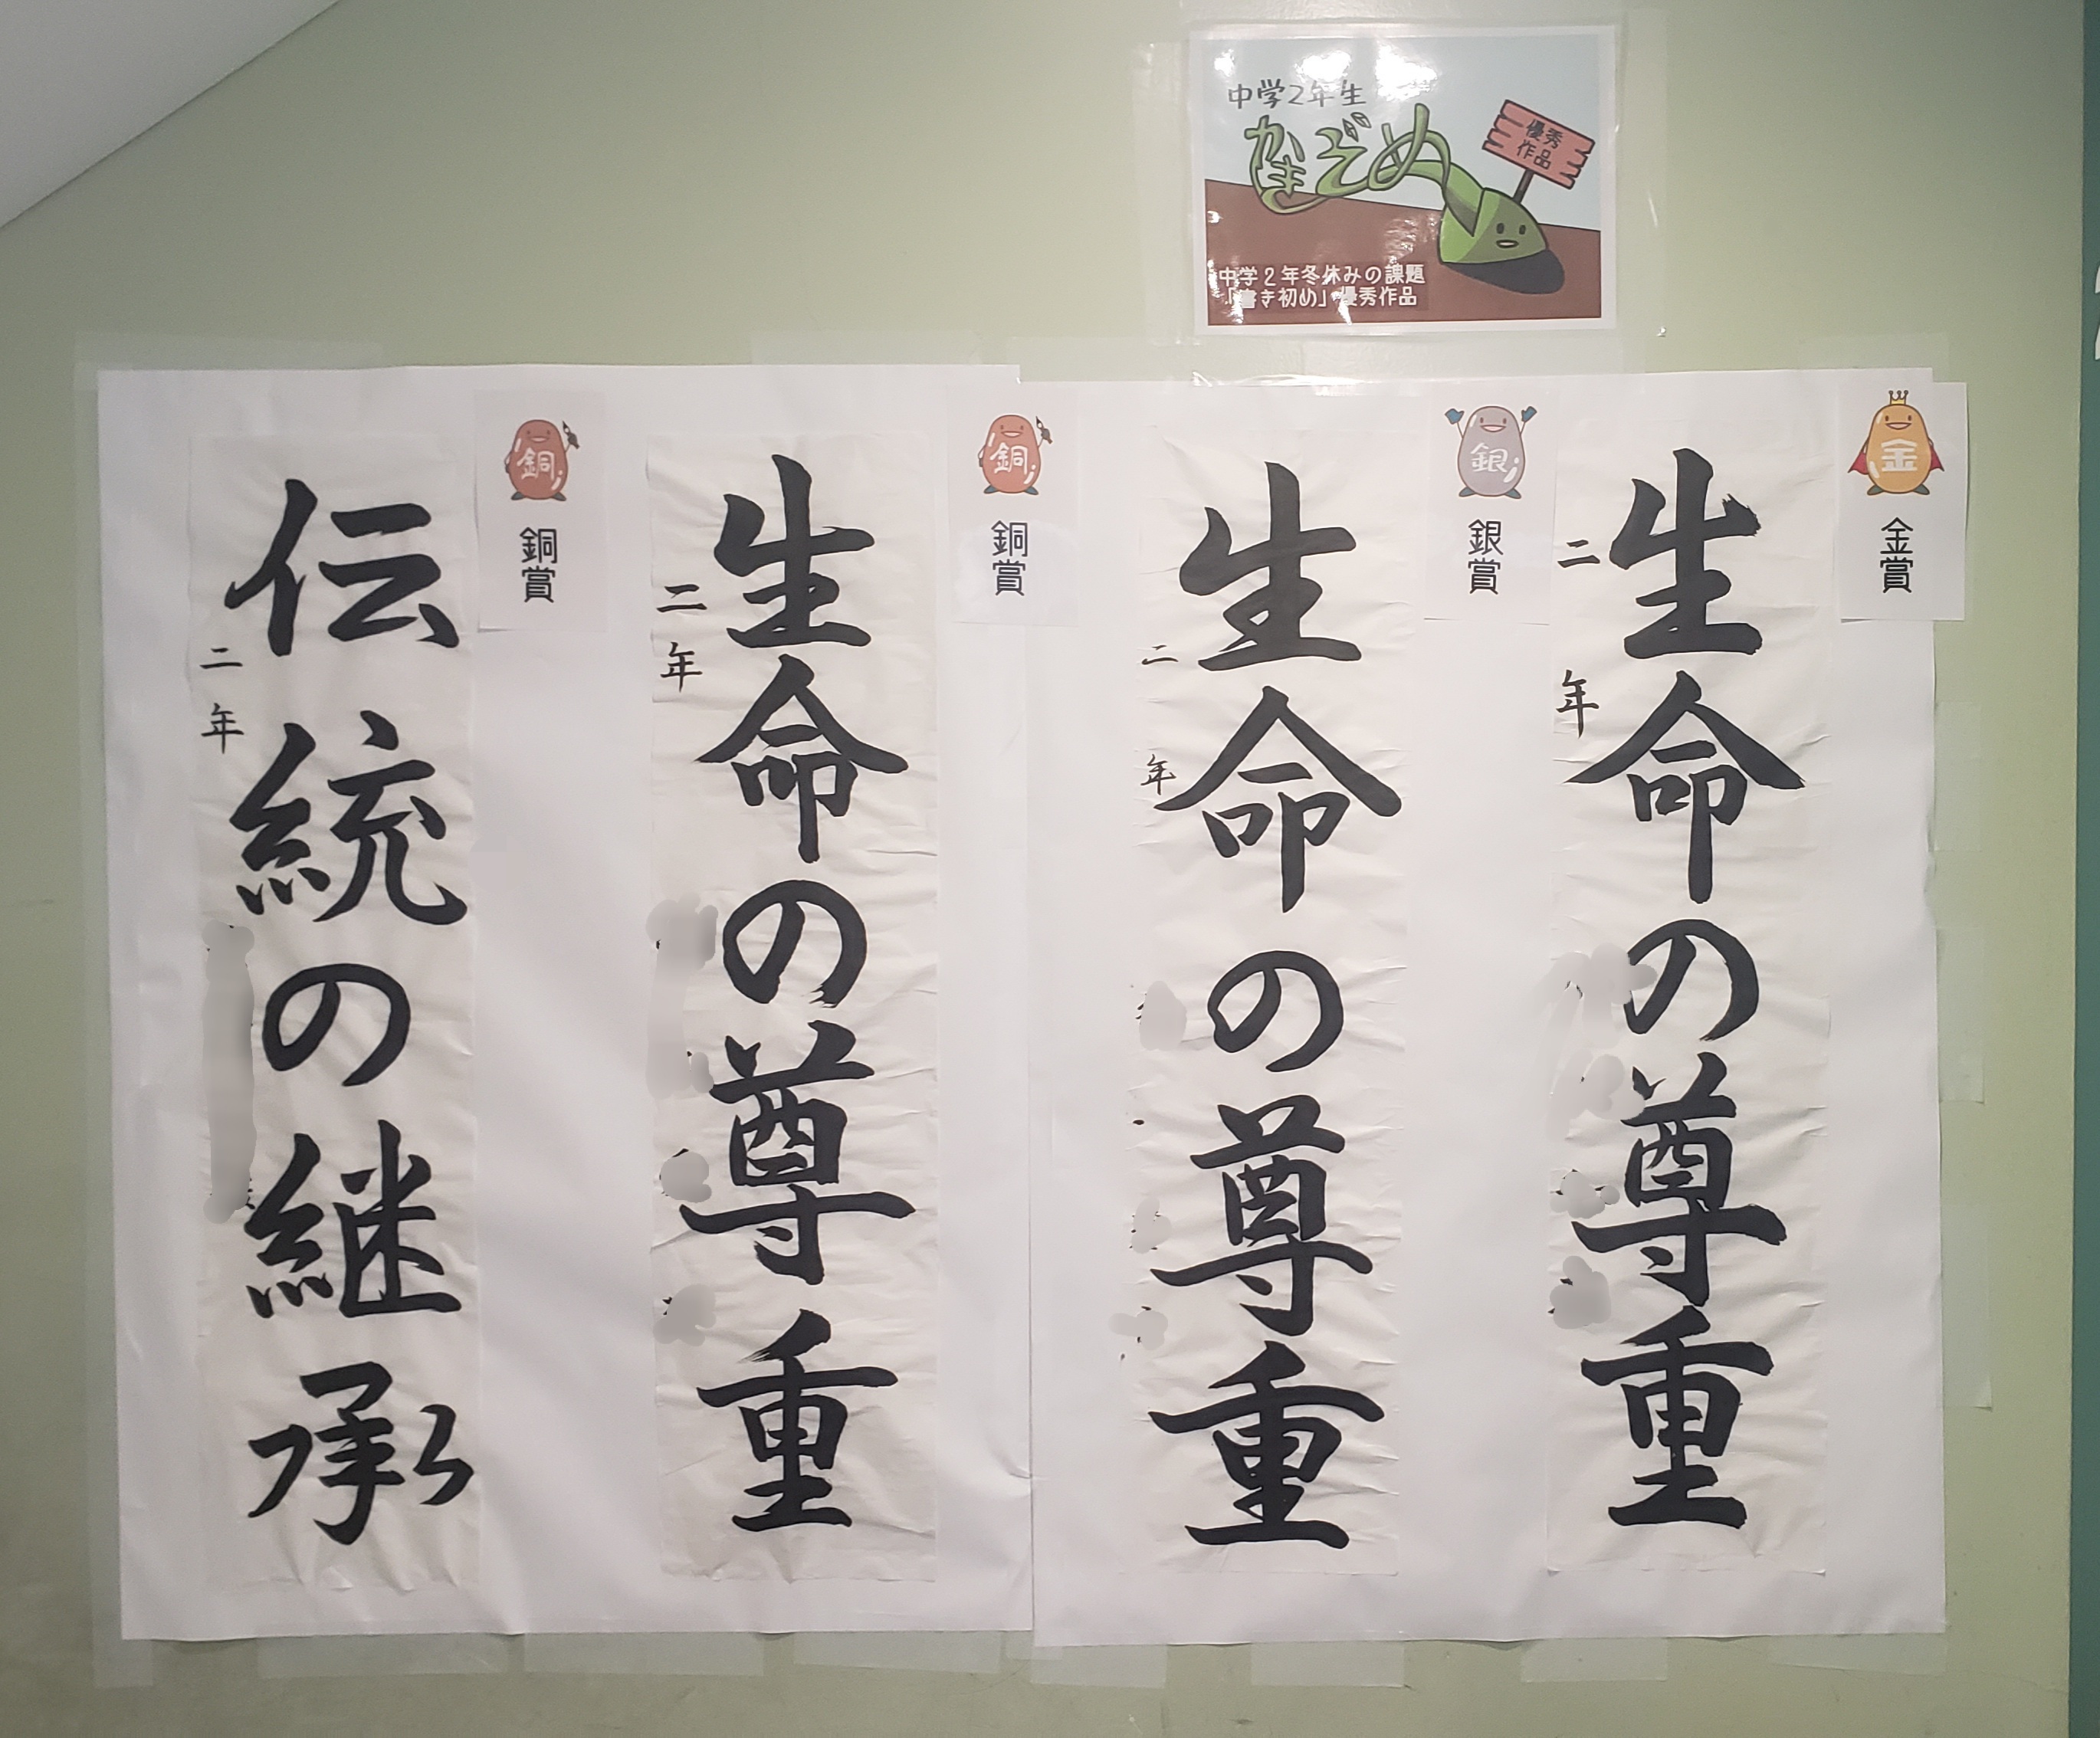 中学2年生
かきぞめ
優秀
作品
中学2年冬休みの課題
「書き初め」優秀作品
金
金賞
生命の尊重
二年
銀
銀賞
生命の尊重
二年
銅
銅賞
生命の尊重
二年
銅
銅賞
伝統の継承
二年